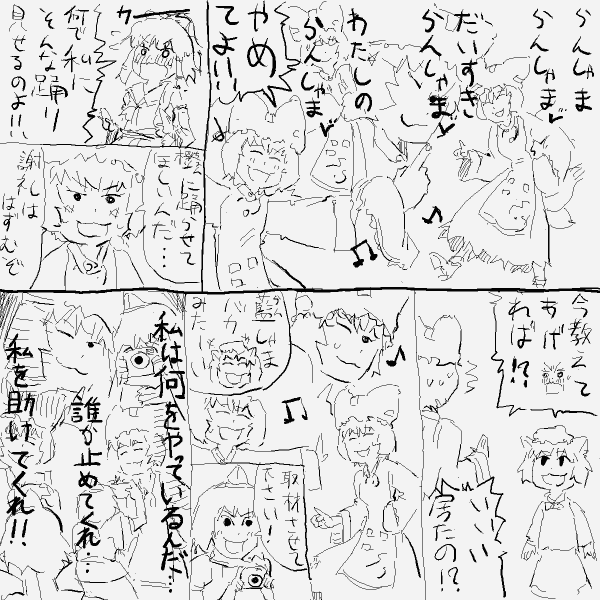 らんしゃま
らんしゃま♥
だいすき
らんしゃま♥
わたしの
らんしゃま♥
やめ
てよ!!
何で私に
そんな踊り
見せるのよ!!
橙に踊らせて
ほしいんだ…
謝礼は
はずむぞ
今教えて
あげ
れば!?
いい
藍しゃま
バカ
みたい
取材させて
下さい!
私は何をやっているんだ…
誰か止めてくれ…
私を助けてくれ!!